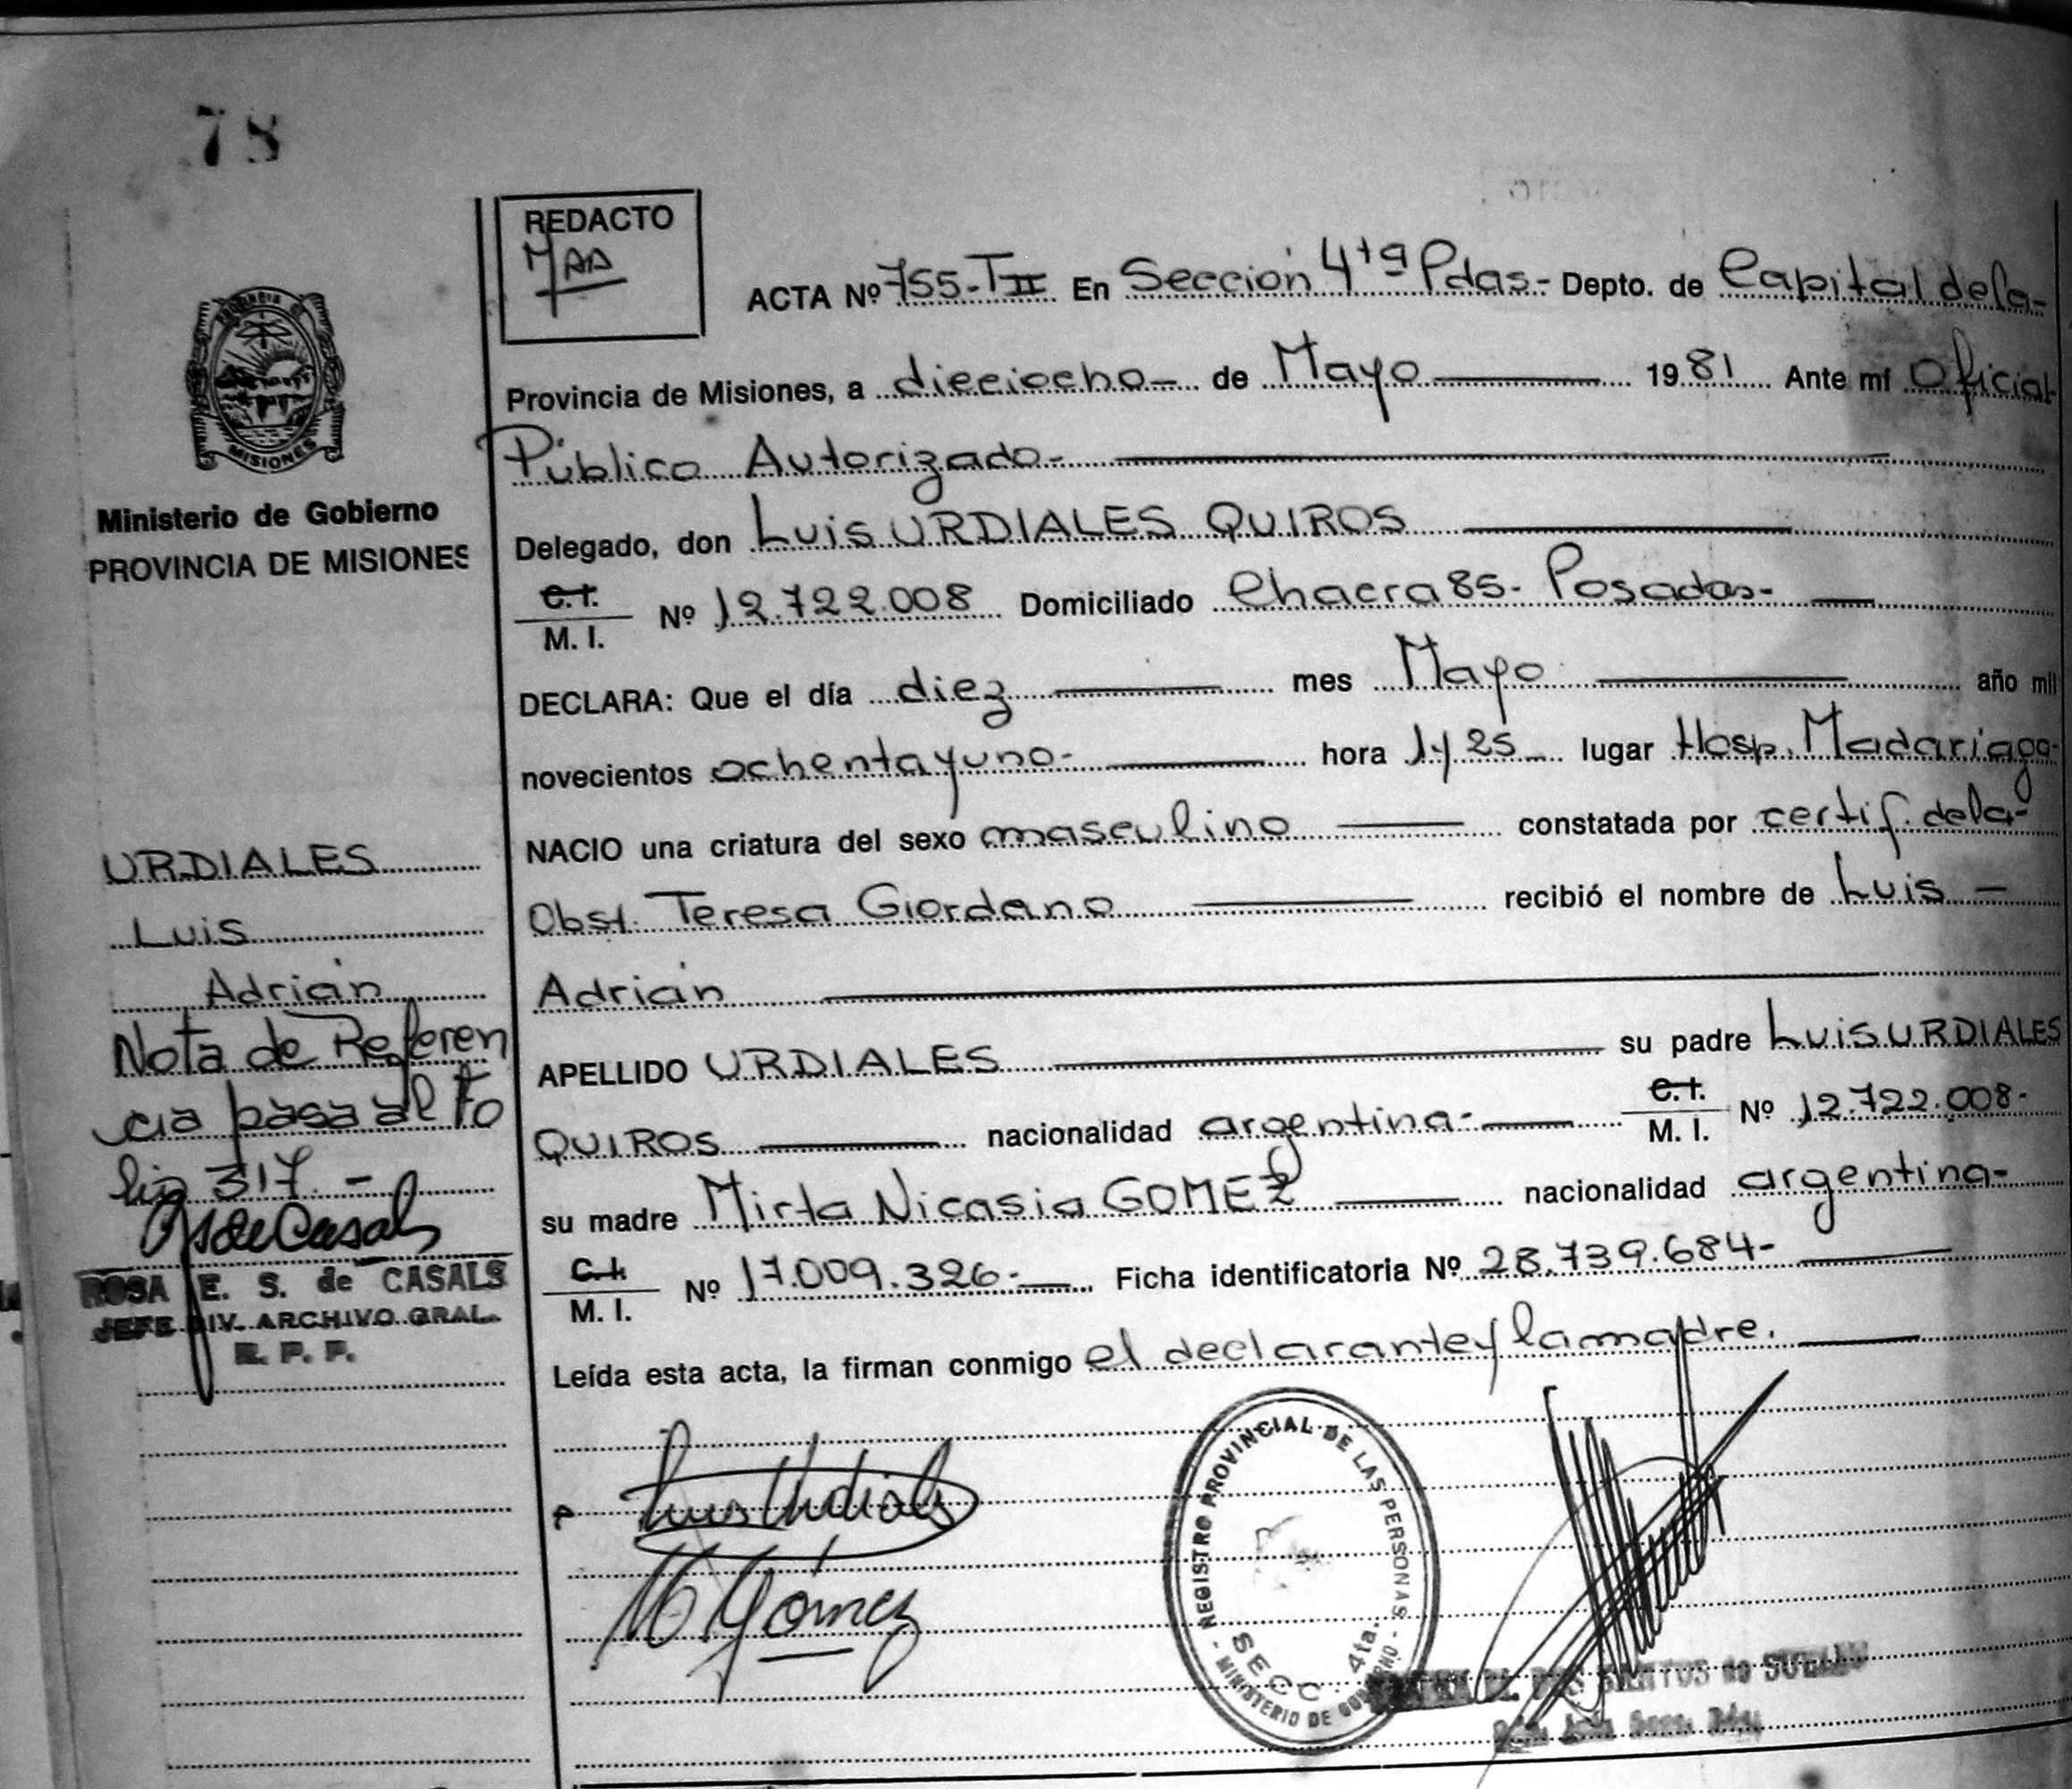 78
REDACTO
MAA
ACTA Nº 755-TII En Sección 4ta Pdas.- Depto. de Capital de la-
Provincia de Misiones, a dieciocho- de Mayo 1981 Ante mí Oficial
Público Autorizado-
Delegado, don Luis URDIALES QUIROS
C.I.
M. I. Nº 12.722.008 Domiciliado Chacra 85- Posadas-
DECLARA: Que el día diez mes Mayo año mil
novecientos ochenta y uno- hora 1 y 25 lugar Hosp. Madariaga-
NACIO una criatura del sexo masculino constatada por certif. de la-
Obst. Teresa Giordano recibió el nombre de Luis -
Adrián
APELLIDO URDIALES su padre Luis URDIALES
QUIROS nacionalidad argentina- C.I. M. I. Nº 12.722.008-
su madre Mirta Nicasia GOMEZ nacionalidad argentina-
C.I.
M. I. Nº 17.009.326- Ficha identificatoria Nº 28.739.684-
Leída esta acta, la firman conmigo el declarante y la madre.
Luis Urdiales
M Gómez
REGISTRO PROVINCIAL DE LAS PERSONAS
- MINISTERIO DE GOBIERNO -
SECC. 4ta.
SANTOS de
PROVINCIA
MISIONES
Ministerio de Gobierno
PROVINCIA DE MISIONES
URDIALES
Luis
Adrián
Nota de Referen
cia pasa al Fo
lio 317.-
RS de Casals
ROSA E. S. de CASALS
JEFE DIV. ARCHIVO GRAL.
R. P. P.